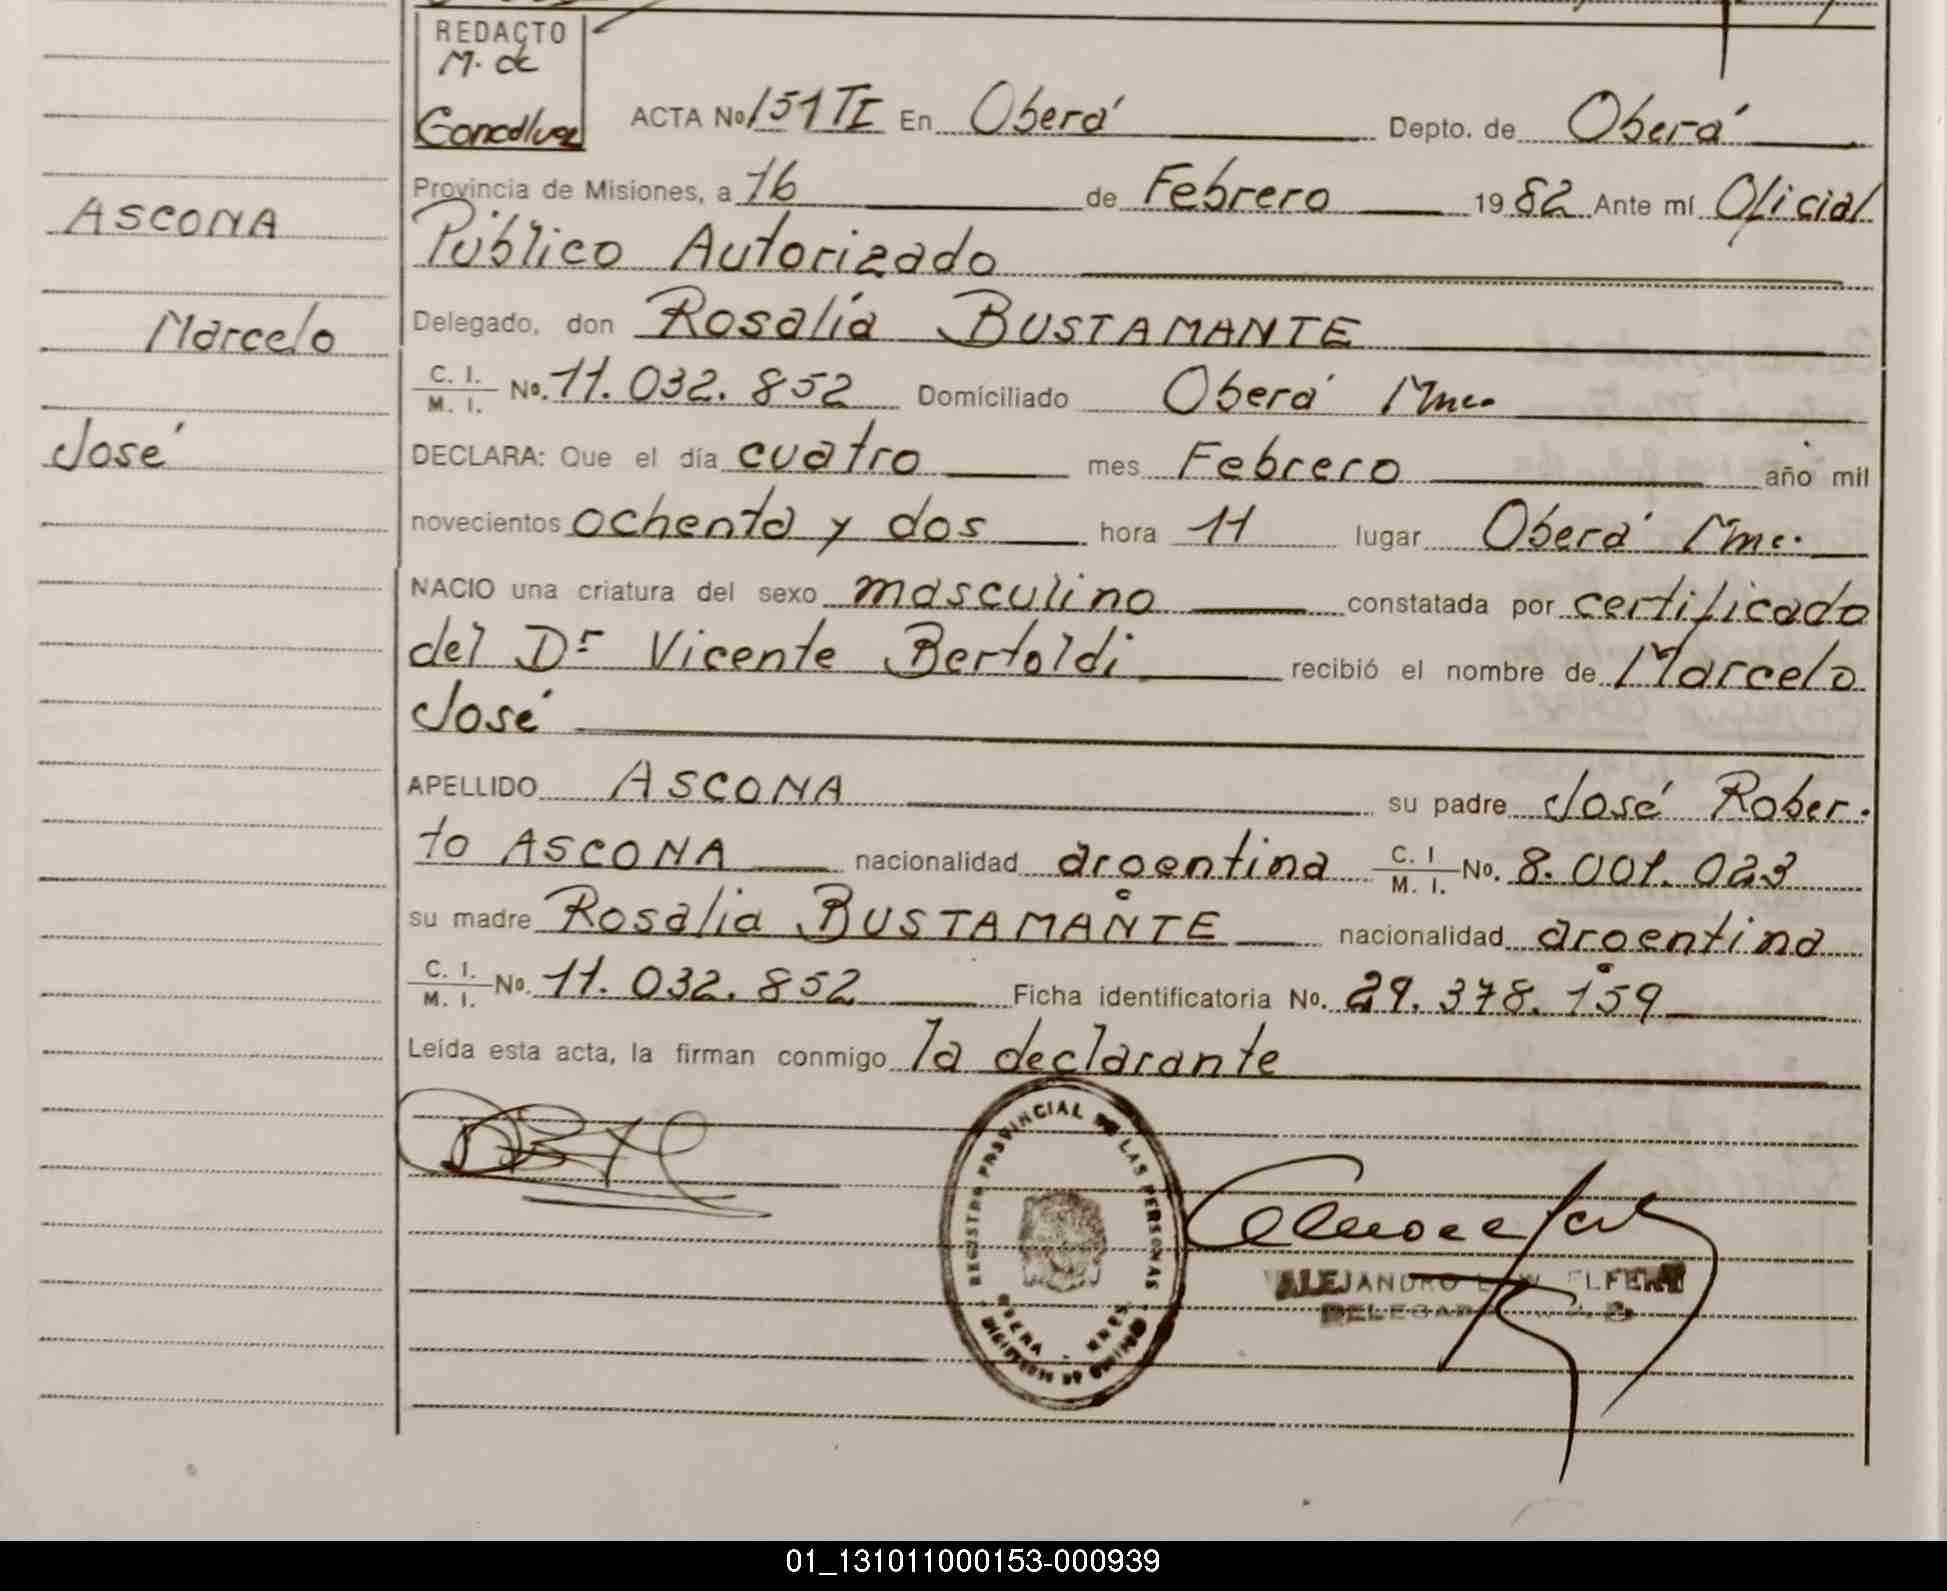 REDACTO
M. de
Goncalvez
ACTA No 151 TI En Oberá Depto. de Oberá
Provincia de Misiones, a 16 de Febrero 1982 Ante mí Oficial
Público Autorizado
Delegado, don Rosalía BUSTAMANTE
C. I. M. I. No. 11.032.852 Domiciliado Oberá Mnes
DECLARA: Que el día cuatro mes Febrero año mil
novecientos ochenta y dos hora 11 lugar Oberá Mnes.
NACIO una criatura del sexo masculino constatada por certificado
del Dr Vicente Bertoldi recibió el nombre de Marcelo
José
APELLIDO ASCONA su padre José Rober-
to ASCONA nacionalidad argentina C. I. M. I. No. 8.001.023
su madre Rosalia BUSTAMANTE nacionalidad argentina
C. I. M. I. No. 11.032.852 Ficha identificatoria No. 29.378.159
Leída esta acta, la firman conmigo la declarante
ASCONA
Marcelo
José
REGISTRO PROVINCIAL DE LAS PERSONAS
OBERA - MNES
MINISTERIO DE GOBIERNO
ALEJANDRO
DELEGADO
01_131011000153-000939